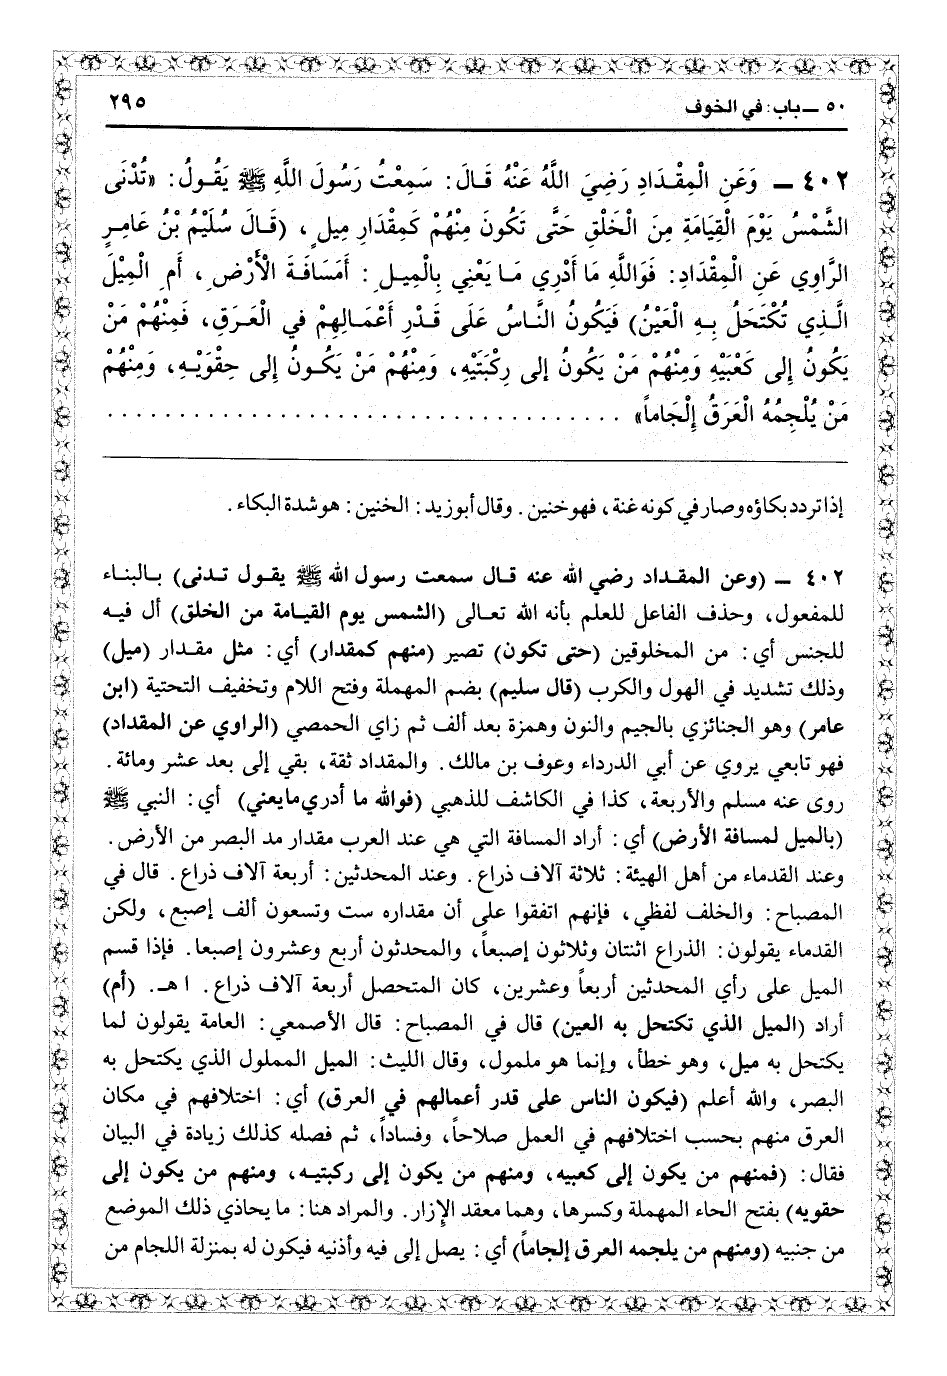 ٥٠ ــ باب: في الخوف
٢٩٥
٤٠٢ ــ وَعَنِ الْمِقْدَادِ رَضِيَ اللَّهُ عَنْهُ قَالَ: سَمِعْتُ رَسُولَ اللَّهِ ﷺ يَقُولُ: «تُدْنَى
الشَّمْسُ يَوْمَ الْقِيَامَةِ مِنَ الْخَلْقِ حَتَّى تَكُونَ مِنْهُمْ كَمِقْدَارِ مِيلٍ، (قَالَ سُلَيْمُ بْنُ عَامِرٍ
الرَّاوِي عَنِ الْمِقْدَادِ: فَوَاللَّهِ مَا أَدْرِي مَا يَعْنِي بِالْمِيلِ: أَمَسَافَةَ الْأَرْضِ، أَمِ الْمِيْلَ
الَّذِي تُكْتَحَلُ بِهِ الْعَيْنُ) فَيَكُونُ النَّاسُ عَلَى قَدْرِ أَعْمَالِهِمْ في الْعَرَقِ، فَمِنْهُمْ مَنْ
يَكُونُ إِلى كَعْبَيْهِ وَمِنْهُمْ مَنْ يَكُونُ إلى رِكْبَتَيْهِ، وَمِنْهُمْ مَنْ يَكُونُ إِلى حِقْوَيْهِ، وَمِنْهُمْ
مَنْ يُلْجِمُهُ الْعَرَقُ إِلْجَاماً» . . . . . . . . . . . . . . . . . . . . . . . . . . . . . . . . . . . .
إذا تردد بكاؤه وصار في كونه غنة، فهو خنين. وقال أبو زيد: الخنين: هو شدة البكاء.
٤٠٢ ــ (وعن المقداد رضي الله عنه قال سمعت رسول الله ﷺ يقول تدنى) بالبناء
للمفعول، وحذف الفاعل للعلم بأنه الله تعالى (الشمس يوم القيامة من الخلق) أل فيه
للجنس أي: من المخلوقين (حتى تكون) تصير (منهم كمقدار) أي: مثل مقدار (ميل)
وذلك تشديد في الهول والكرب (قال سليم) بضم المهملة وفتح اللام وتخفيف التحتية (ابن
عامر) وهو الجنائزي بالجيم والنون وهمزة بعد ألف ثم زاي الحمصي (الراوي عن المقداد)
فهو تابعي يروي عن أبي الدرداء وعوف بن مالك. والمقداد ثقة، بقي إلى بعد عشر ومائة.
روى عنه مسلم والأربعة، كذا في الكاشف للذهبي (فوالله ما أدري ما يعني) أي: النبي ﷺ
(بالميل لمسافة الأرض) أي: أراد المسافة التي هي عند العرب مقدار مد البصر من الأرض.
وعند القدماء من أهل الهيئة: ثلاثة آلاف ذراع. وعند المحدثين: أربعة آلاف ذراع. قال في
المصباح: والخلف لفظي، فإنهم اتفقوا على أن مقداره ست وتسعون ألف إصبع، ولكن
القدماء يقولون: الذراع اثنتان وثلاثون إصبعاً، والمحدثون أربع وعشرون إصبعا. فإذا قسم
الميل على رأي المحدثين أربعاً وعشرين، كان المتحصل أربعة آلاف ذراع. ا هـ. (أم)
أراد (الميل الذي تكتحل به العين) قال في المصباح: قال الأصمعي: العامة يقولون لما
يكتحل به ميل، وهو خطأ، وإنما هو ملمول، وقال الليث: الميل المملول الذي يكتحل به
البصر، والله أعلم (فيكون الناس على قدر أعمالهم في العرق) أي: اختلافهم في مكان
العرق منهم بحسب اختلافهم في العمل صلاحاً، وفساداً، ثم فصله كذلك زيادة في البيان
فقال: (فمنهم من يكون إلى كعبيه، ومنهم من يكون إلى ركبتيه، ومنهم من يكون إلى
حقويه) بفتح الحاء المهملة وكسرها، وهما معقد الإزار. والمراد هنا: ما يحاذي ذلك الموضع
من جنبيه (ومنهم من يلجمه العرق إلجاماً) أي: يصل إلى فيه وأذنيه فيكون له بمنزلة اللجام من